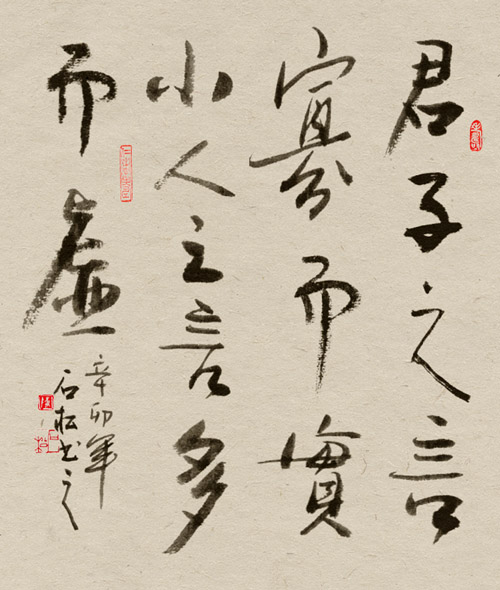 君子之言
寡而實
小人之言多
而虛
辛卯年
石松书之